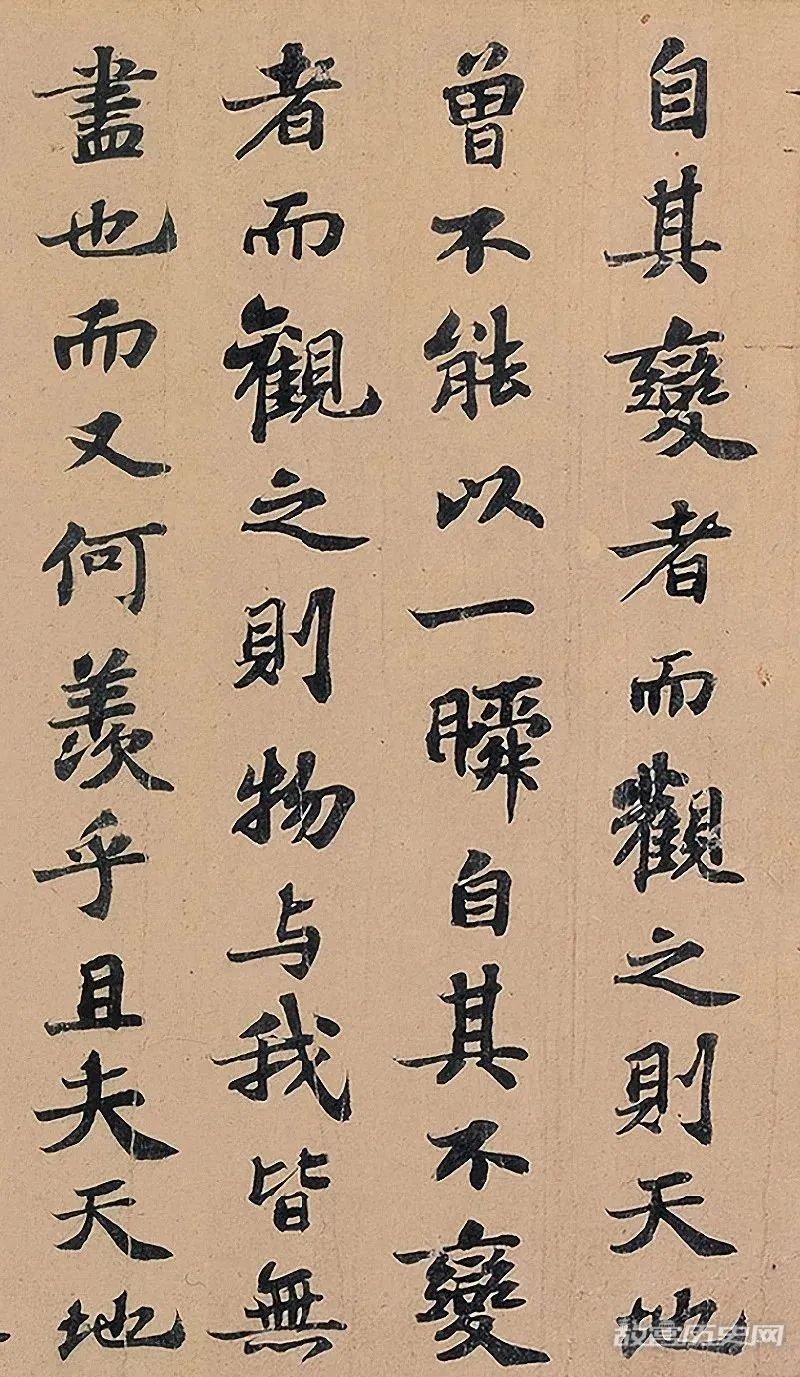 自其變者而觀之則天地
曾不能以一瞬自其不變
者而觀之則物与我皆無
盡也而又何羨乎且夫天地
故宫历史网